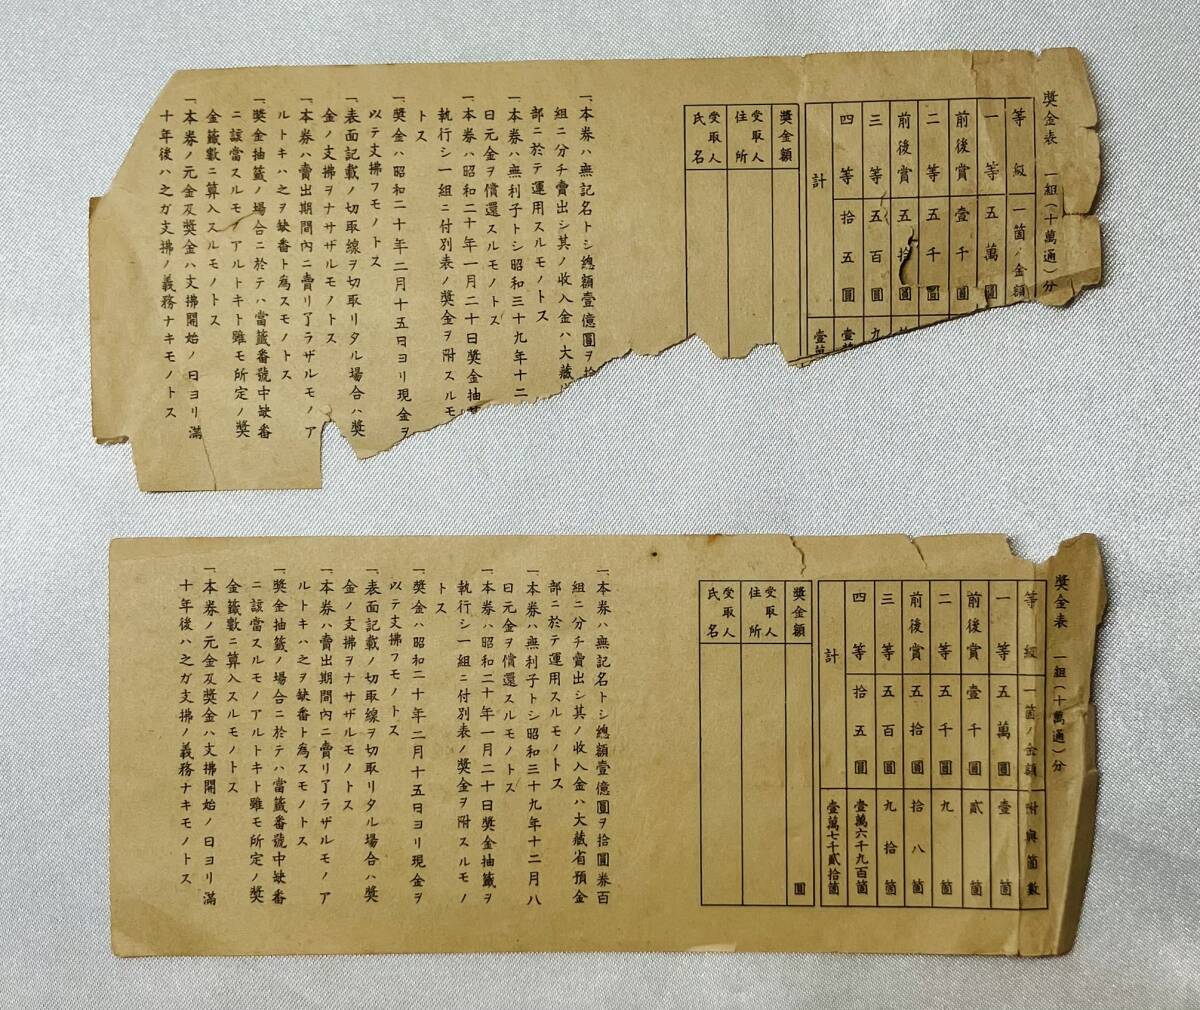 奬金表 一組(十萬通)分
等級 一箇ノ金額
一等 五萬圓
前後賞 壹千圓
二等 五千圓
前後賞 五拾圓
三等 五百圓 九
四等 拾五圓 壹萬
計 壹萬
奬金額
受取人住所
受取人氏名
一、本券ハ無記名トシ總額壹億圓ヲ拾
組ニ分チ賣出シ其ノ收入金ハ大藏
部ニ於テ運用スルモノトス
一、本券ハ無利子トシ昭和三十九年十二
日元金ヲ償還スルモノトス
一、本券ハ昭和二十年一月二十日奬金抽
執行シ一組ニ付別表ノ奬金ヲ附スルモ
トス
一、奬金ハ昭和二十年二月十五日ヨリ現金ヲ
以テ支拂フモノトス
一、表面記載ノ切取線ヲ切取リタル場合ハ奬
金ノ支拂ヲナサザルモノトス
一、本券ハ賣出期間內ニ賣リ了ラザルモノア
ルトキハ之ヲ缺番ト爲スモノトス
一、奬金抽籤ノ場合ニ於テハ當籤番號中缺番
ニ該當スルモノアルトキト雖モ所定ノ奬
金籤數ニ算入スルモノトス
一、本券ノ元金及奬金ハ支拂開始ノ日ヨリ滿
十年後ハ之ガ支拂ノ義務ナキモノトス
奬金表 一組(十萬通)分
等級 一箇ノ金額 附與箇數
一等 五萬圓 壹箇
前後賞 壹千圓 貳箇
二等 五千圓 九箇
前後賞 五拾圓 拾八箇
三等 五百圓 九拾箇
四等 拾五圓 壹萬六千九百箇
計 壹萬七千貳拾箇
奬金額 圓
受取人住所
受取人氏名
一、本券ハ無記名トシ總額壹億圓ヲ拾圓券百
組ニ分チ賣出シ其ノ收入金ハ大藏省預金
部ニ於テ運用スルモノトス
一、本券ハ無利子トシ昭和三十九年十二月八
日元金ヲ償還スルモノトス
一、本券ハ昭和二十年一月二十日奬金抽籤ヲ
執行シ一組ニ付別表ノ奬金ヲ附スルモノ
トス
一、奬金ハ昭和二十年二月十五日ヨリ現金ヲ
以テ支拂フモノトス
一、表面記載ノ切取線ヲ切取リタル場合ハ奬
金ノ支拂ヲナサザルモノトス
一、本券ハ賣出期間內ニ賣リ了ラザルモノア
ルトキハ之ヲ缺番ト爲スモノトス
一、奬金抽籤ノ場合ニ於テハ當籤番號中缺番
ニ該當スルモノアルトキト雖モ所定ノ奬
金籤數ニ算入スルモノトス
一、本券ノ元金及奬金ハ支拂開始ノ日ヨリ滿
十年後ハ之ガ支拂ノ義務ナキモノトス